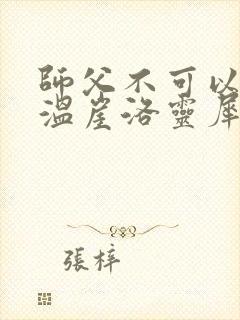 師父不可以
溫崖洛靈犀
張梓